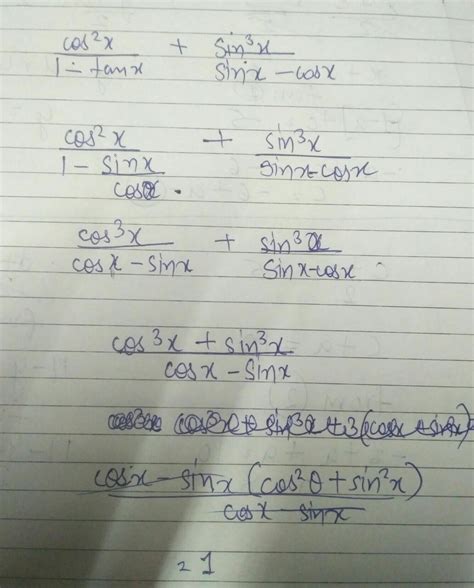 cos²x / 1 - tanx + sin³x / sinx - cosx
cos²x / 1 - sinx / cosx + sin³x / sinx - cosx
cos³x / cosx - sinx + sin³x / sinx - cosx
cos³x + sin³x / cosx - sinx
cos³x + sin³x + 3(cosx + sinx)
cosx - sinx (cos²θ + sin²x) / cosx - sinx
= 1